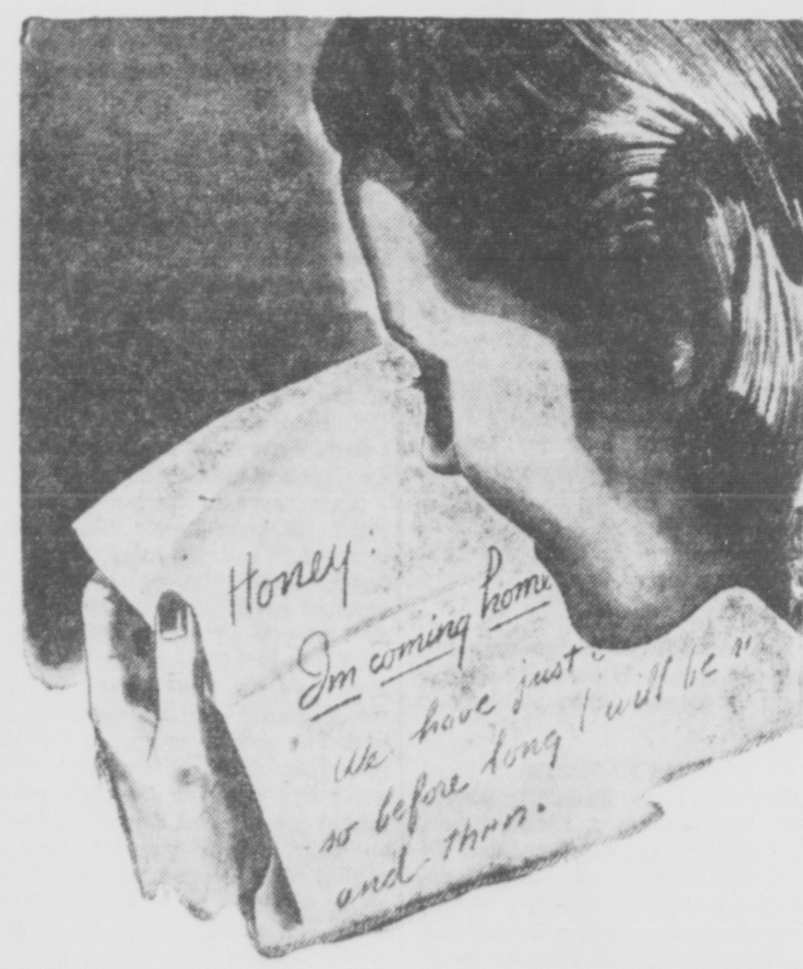 Honey:
Im coming home
We have just
so before long I will be
and then.